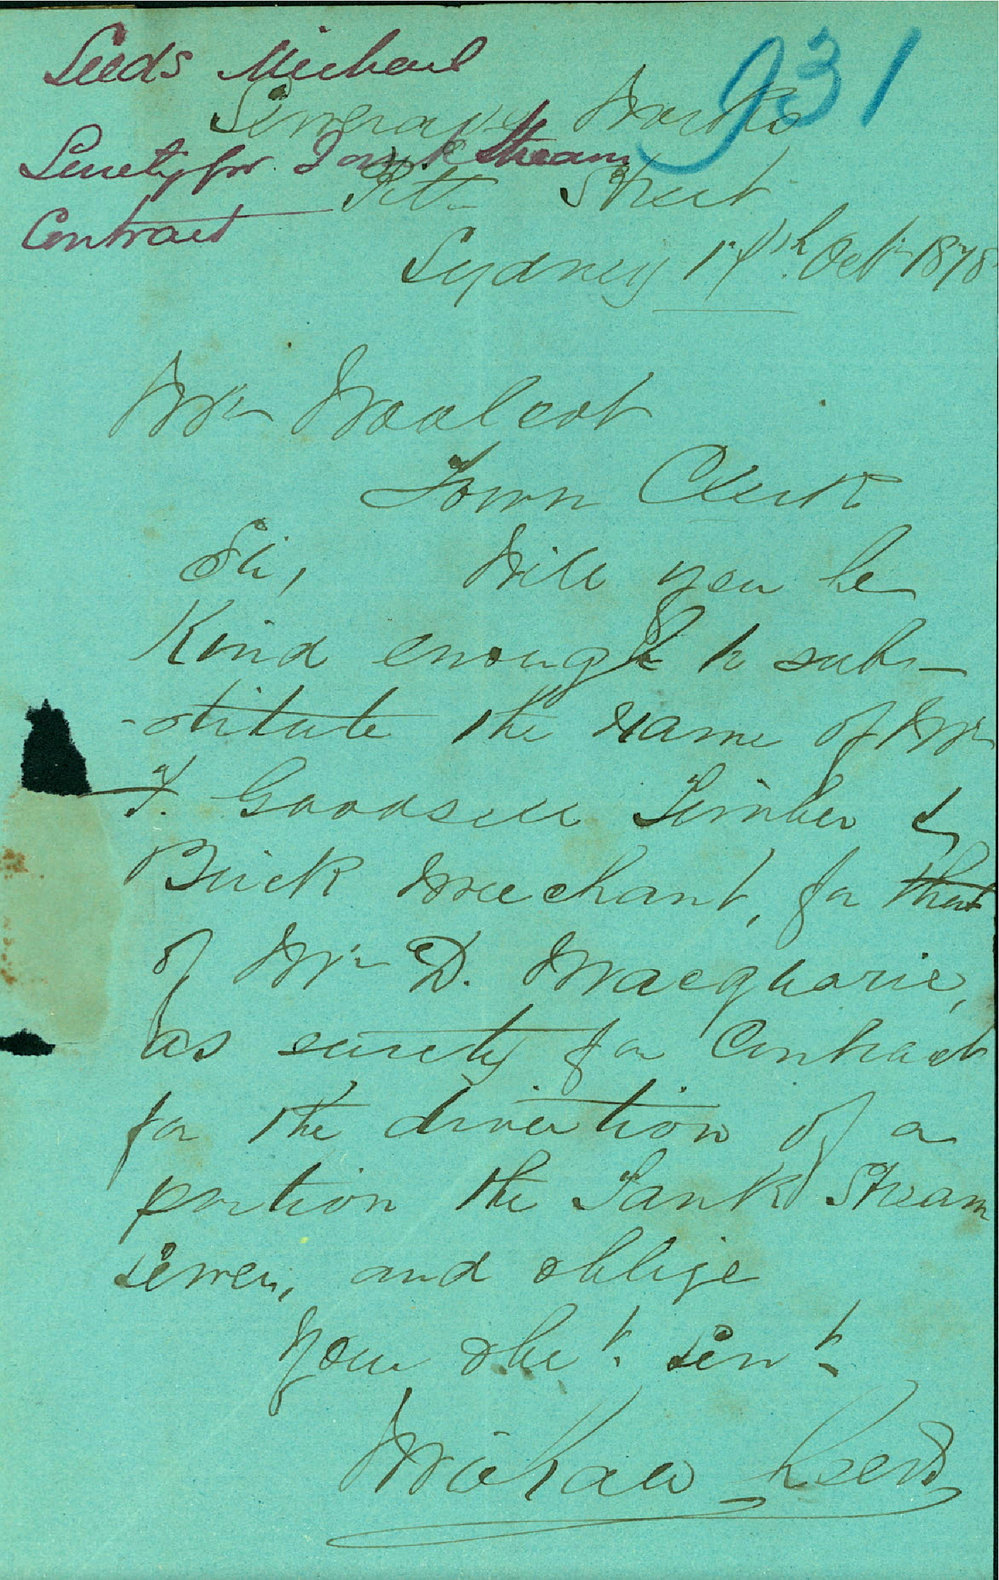 931
Seeds Michael
Surety for Tank Stream
Contract
Sewerage Works
Pitt Street
Sydney 14th Oct 1878
Mr Woolcot
Town Clerk
Sir, Will you be
Kind enough to sub-
-stitute the name of Mr
F. Goodsell Timber &
Brick Merchant, for that
of Mr D. Macquarie,
as surety for Contract
for the diversion of a
portion the Tank Stream
sewer, and oblige
Your obt. Sert
Michael Seeds